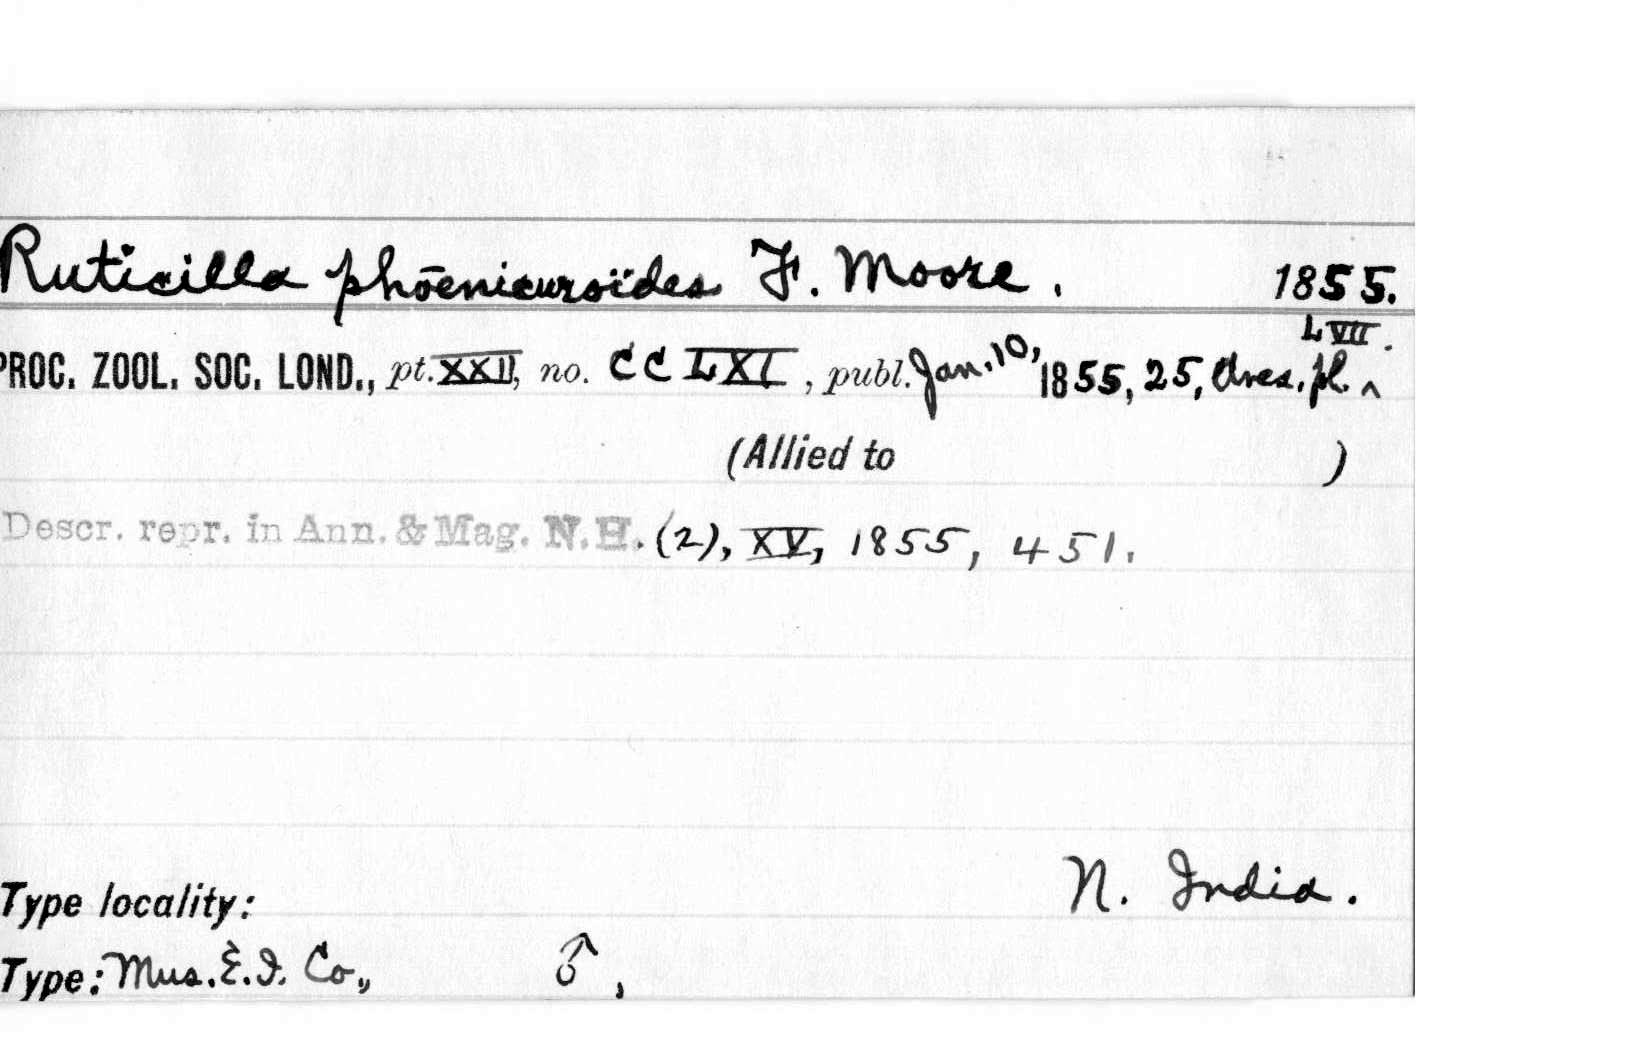 Ruticilla phōenicuroïdes F. Moore. 1855.
PROC. ZOOL. SOC. LOND., pt. XXII, no. CCLXI, publ. Jan. 10, 1855, 25, Aves. pl. ^ LVII.
(Allied to )
Descr. repr. in Ann. & Mag. N.H. (2), XV, 1855, 451.
Type locality: N. India.
Type: Mus. E. I. Co., ♂,